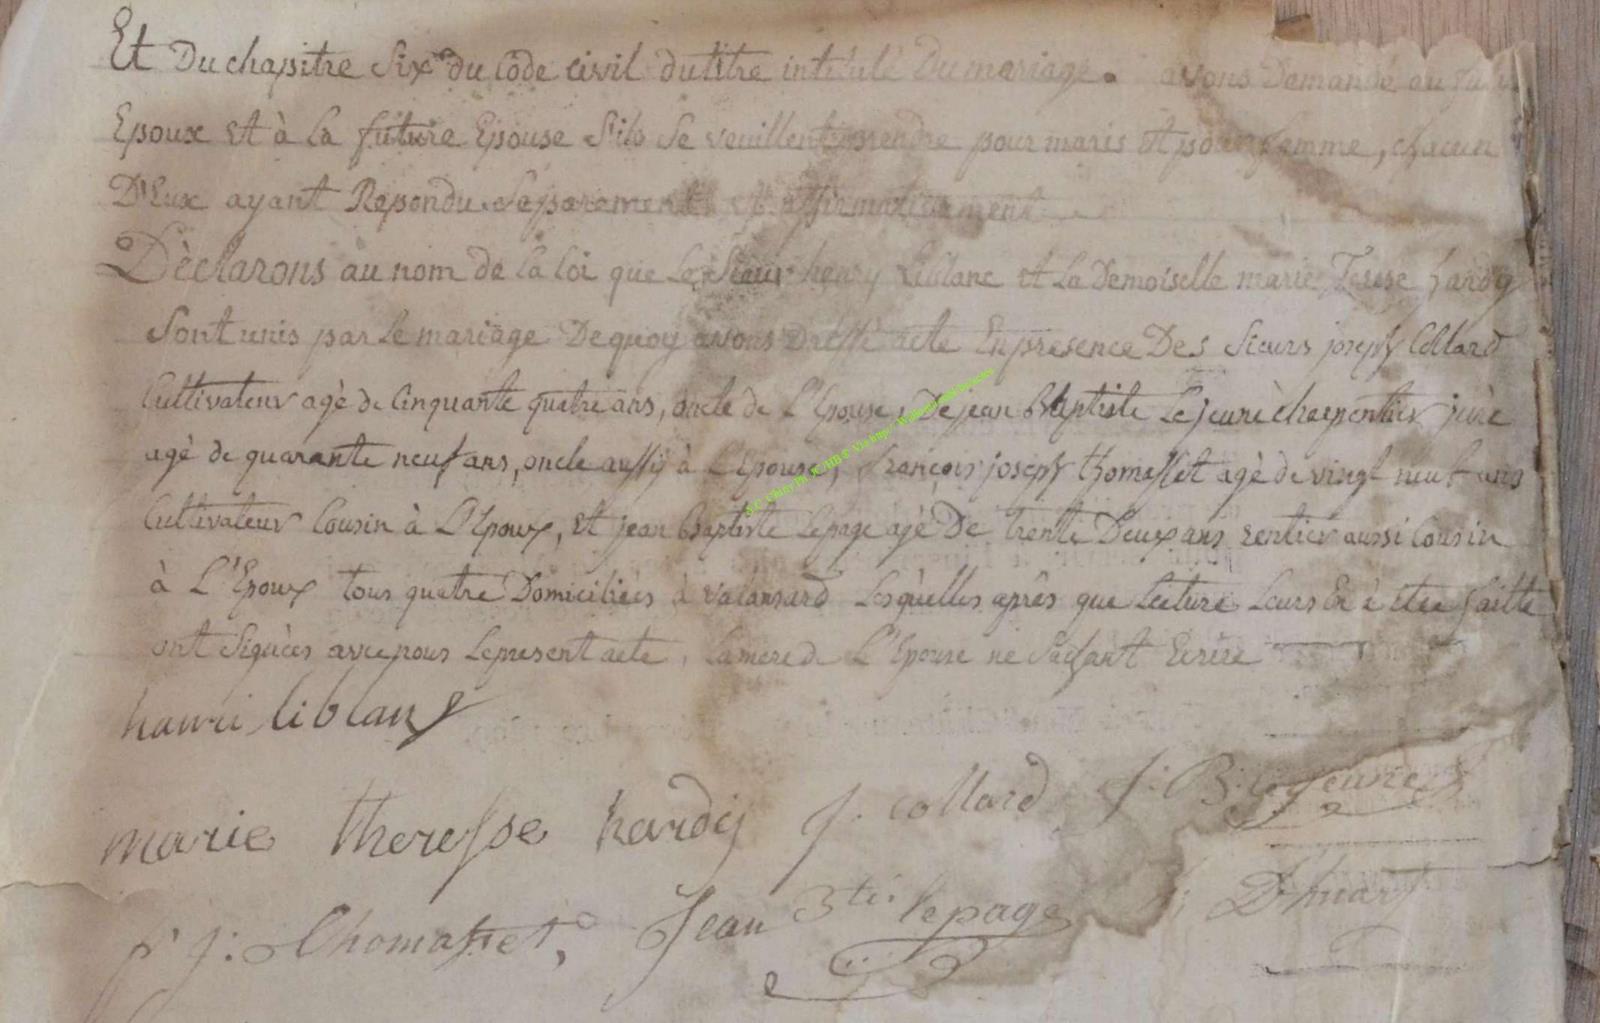 Et Du chapitre Six du code civil du titre intitulé Du mariage. avons Demandé au futur
Epoux et à La future Epouse S'ils Se veuillent prendre pour maris et pour femme, chacun
D'Eux ayant Repondu Separement et affirmativement
Dèclarons au nom de la loi que Le Sieur henry Liblanc et La Demoiselle marie Terese hardy
Sont unis par le mariage De quoy avons Dressé acte En presence Des Sieurs joseph Collard
Cultivateur agè de Cinquante quatre ans, oncle de L'Epouse, De jean Baptiste Lejeune charpentier jurè
agè de quarante neuf ans, oncle aussy à L'Epouse, françois joseph thomasset agè de vingt neuf ans
Cultivateur Cousin à L'Epoux, et jean Baptiste Lepage agè De trente Deux ans rentier aussi Cousin
à L'Epoux tous quatre Domiciliées à valansard Lesquelles après que Lecture Leurs En è étée faitte
ont Signèes avec nous Le present acte, La mere de L'Epouse ne Sachant Ecrire
hanri liblans
marie theresse hardy J. collard J: B: Lejeune
f j: thomasset, Jean Bte: lepage Dhuart